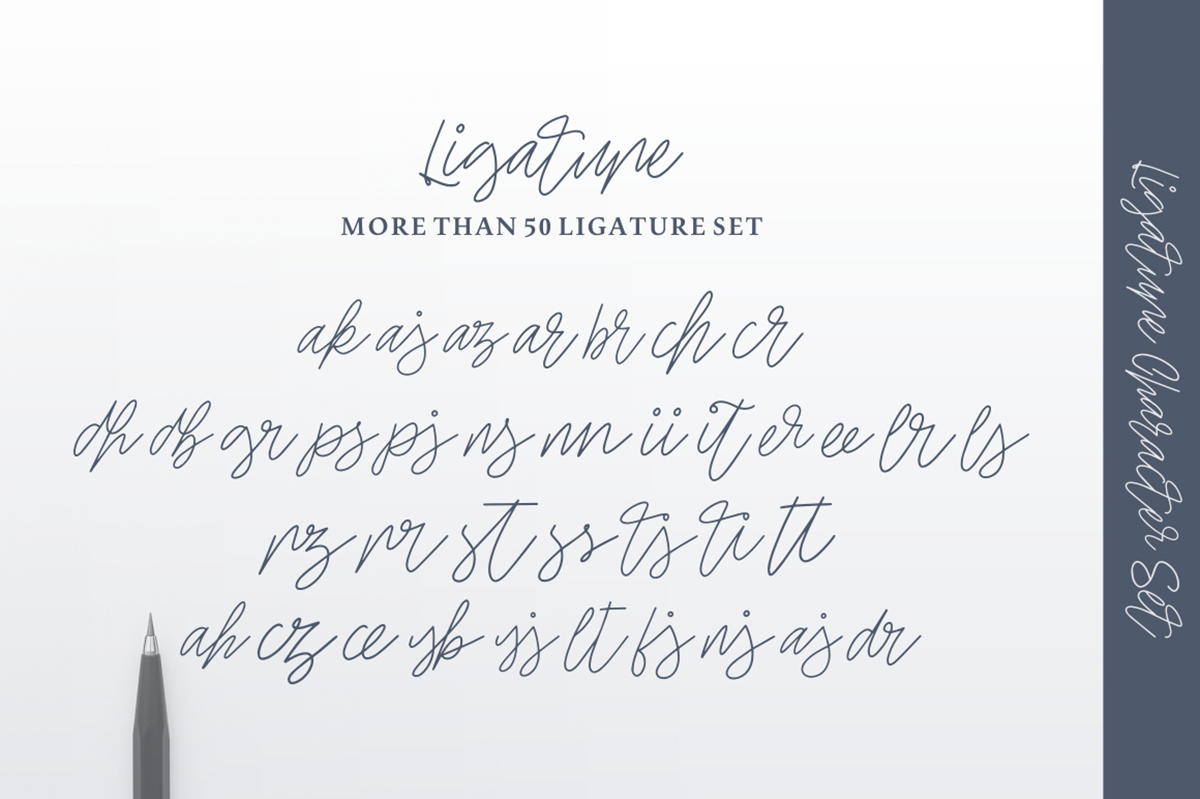 Ligature
MORE THAN 50 LIGATURE SET
ak aj az ar br ch cr
dh db gr ps pj ns nn ii it er ee lr ls
rz rr st ss tj ti tt
ah cz ce yb yj lt fj nj aj dr
Ligature Character Set